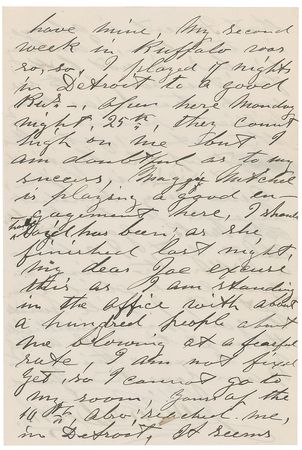 have mine, My second
week in Buffalo was
so, so, I played 7 nights
in Detroit to a good
Bus—, open here Monday
night, 25th, they count
high on me but I
am doubtful as to my
success, Maggie Mitchel
is playing a good en-
gagement here, I should
say has been, as she
finished last night,
my dear Joe excuse
this as I am standing
in the office with about
a hundred people about
me blowing at a fearful
rate, I am not fixed
yet, so I cannot go to
my room, yours of the
19th, also, reached me,
in Detroit, It seems